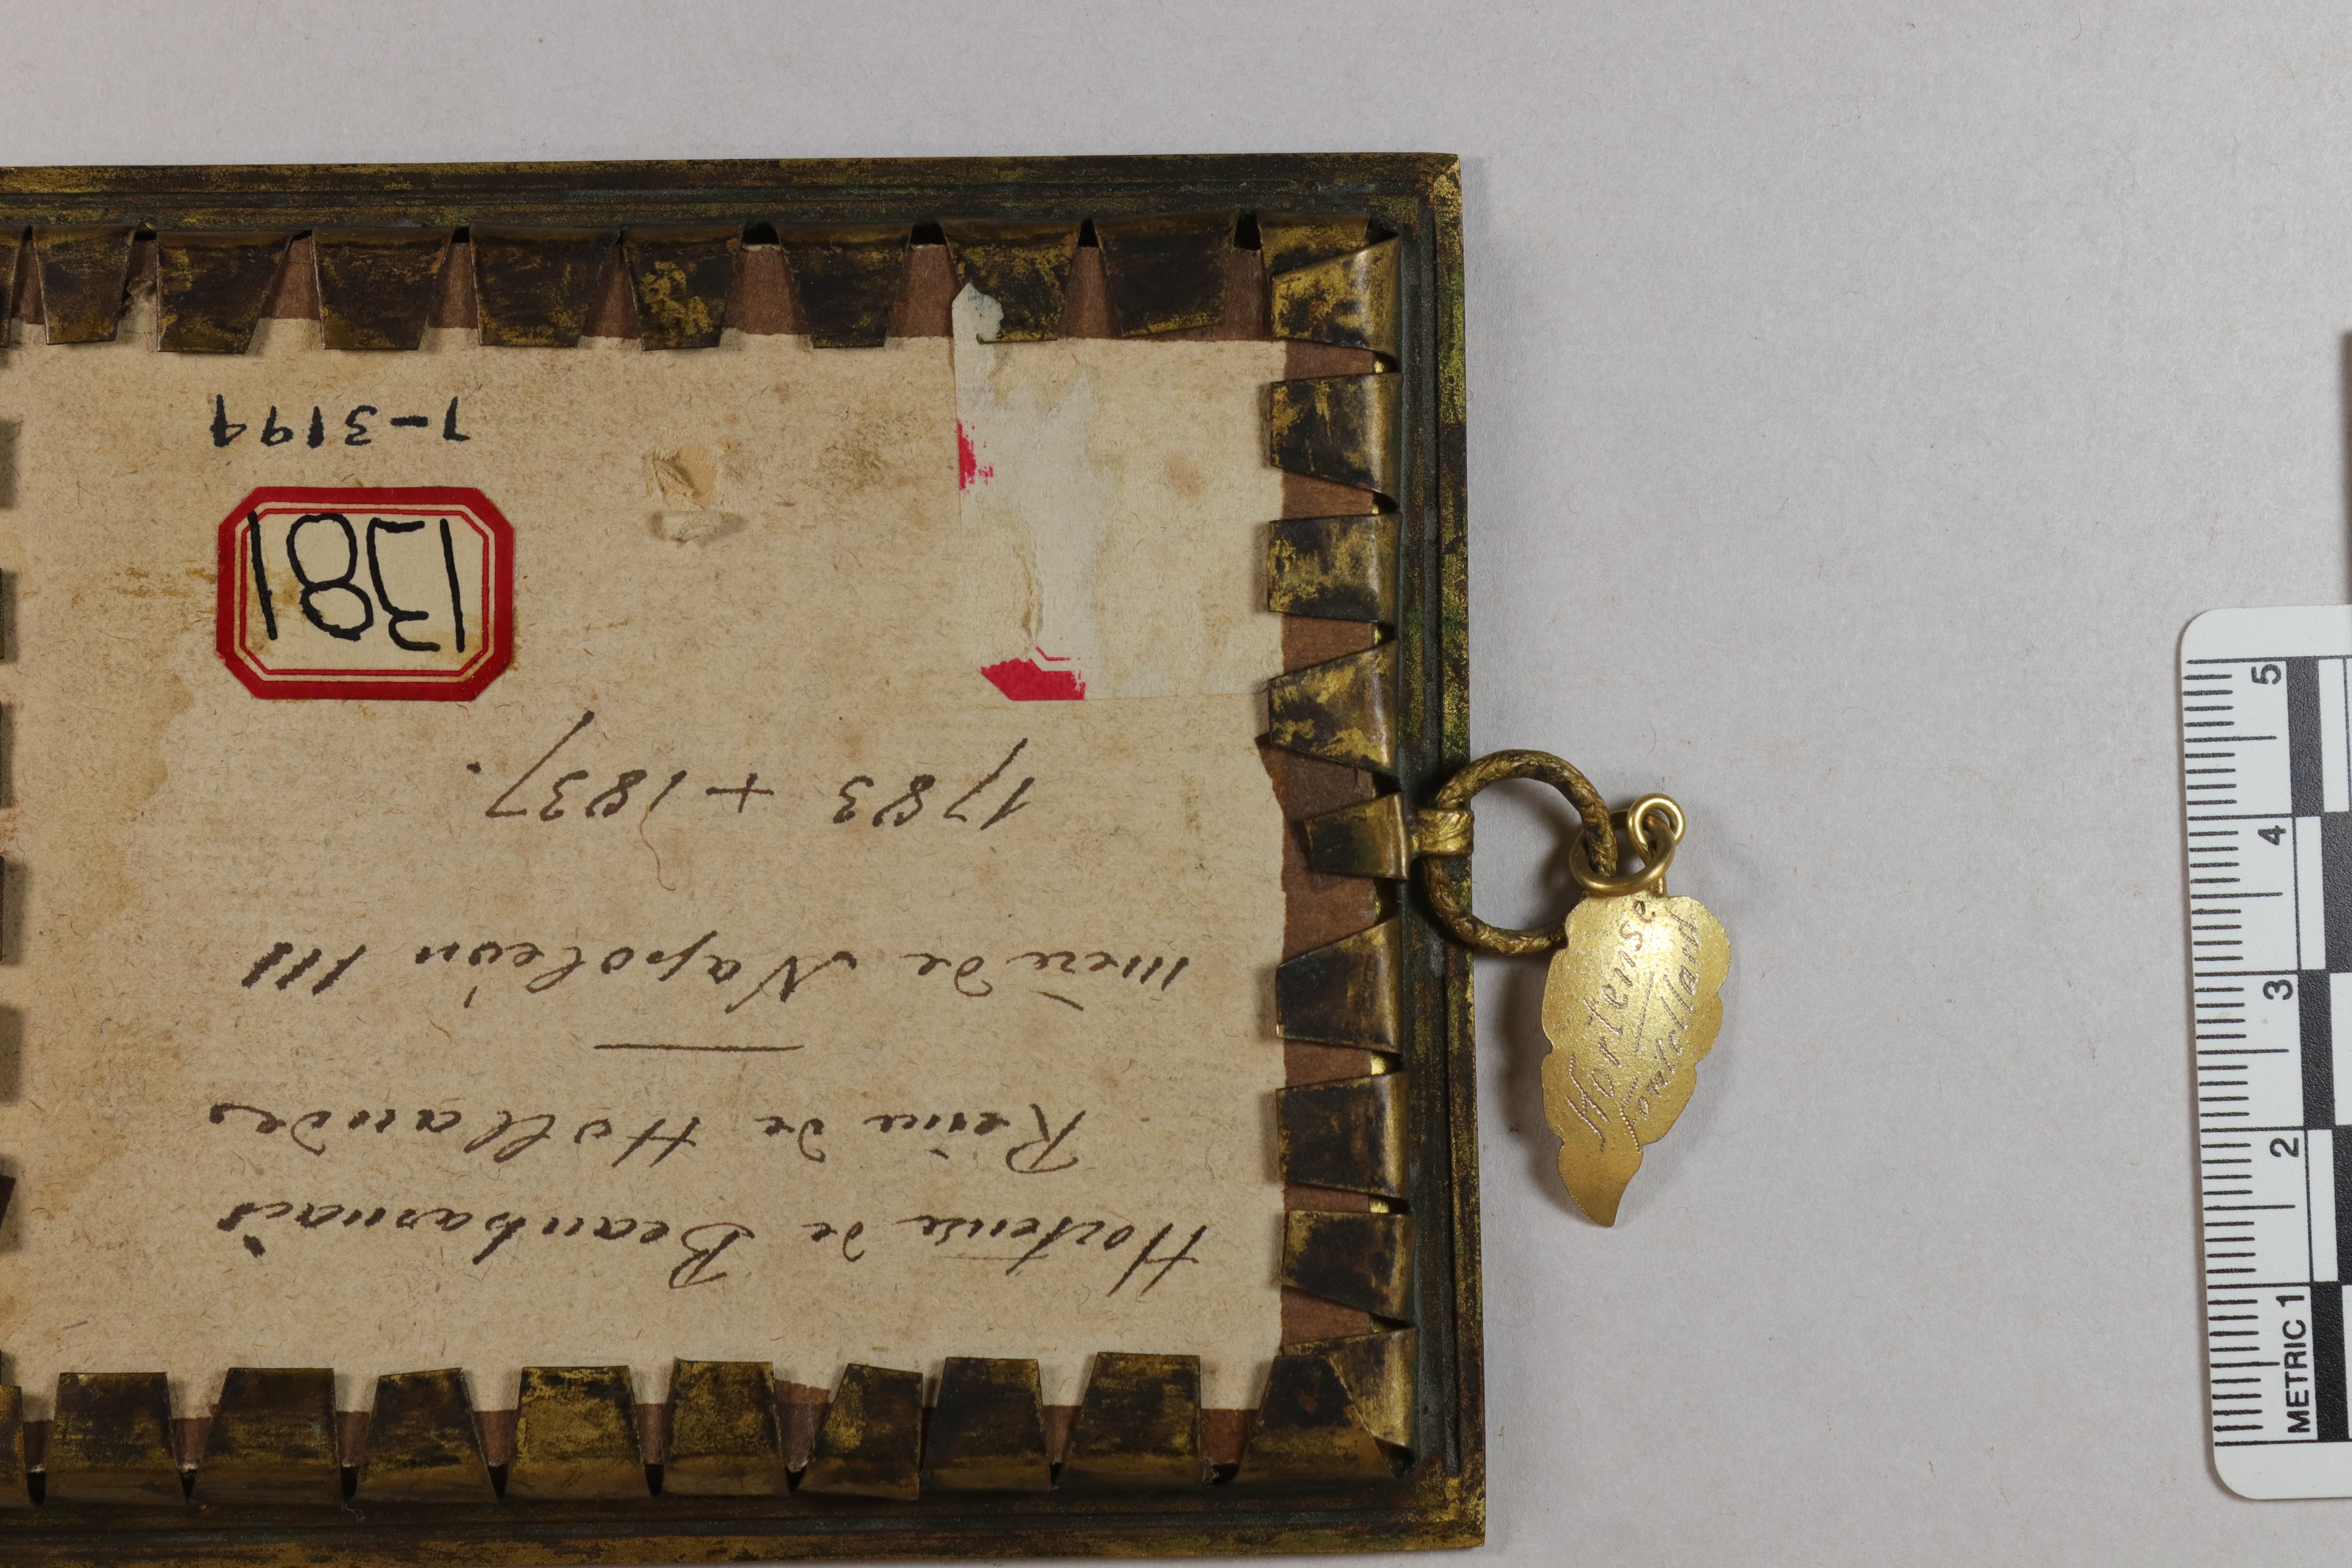 Hortense de Beauharnais
Reine de Hollande
mère de Napoléon III
1783 + 1837.
1381
Hortense
METRIC 1
2
3
4
5